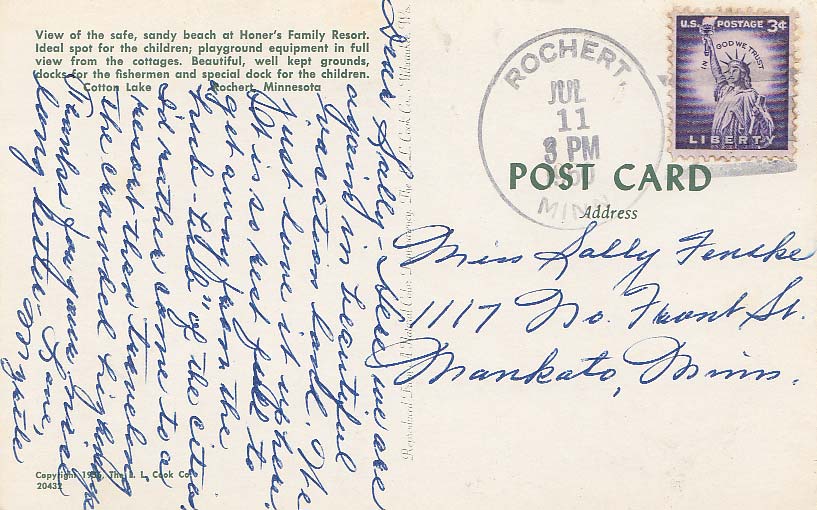 View of the safe, sandy beach at Honer's Family Resort.
Ideal spot for the children; playground equipment in full
view from the cottages. Beautiful, well kept grounds,
docks for the fishermen and special dock for the children.
Cotton Lake Rochert, Minnesota
Dear Sally - Here we are
again in beautiful
vacation land. We
just love it up here.
It is so rest full to
get away from the
"hub-bub" of the cities.
I'd rather come to a
resort than traveling
the crowded highways
Thanks for your nice
long letter - Love,
Copyright The L. L. Cook Co.
20432
ROCHERT,
JUL
11
3 PM
MINN
U.S. POSTAGE 3¢
IN GOD WE TRUST
LIBERTY
POST CARD
Address
Miss Sally Fenske
1117 No. Front St.
Mankato, Minn.